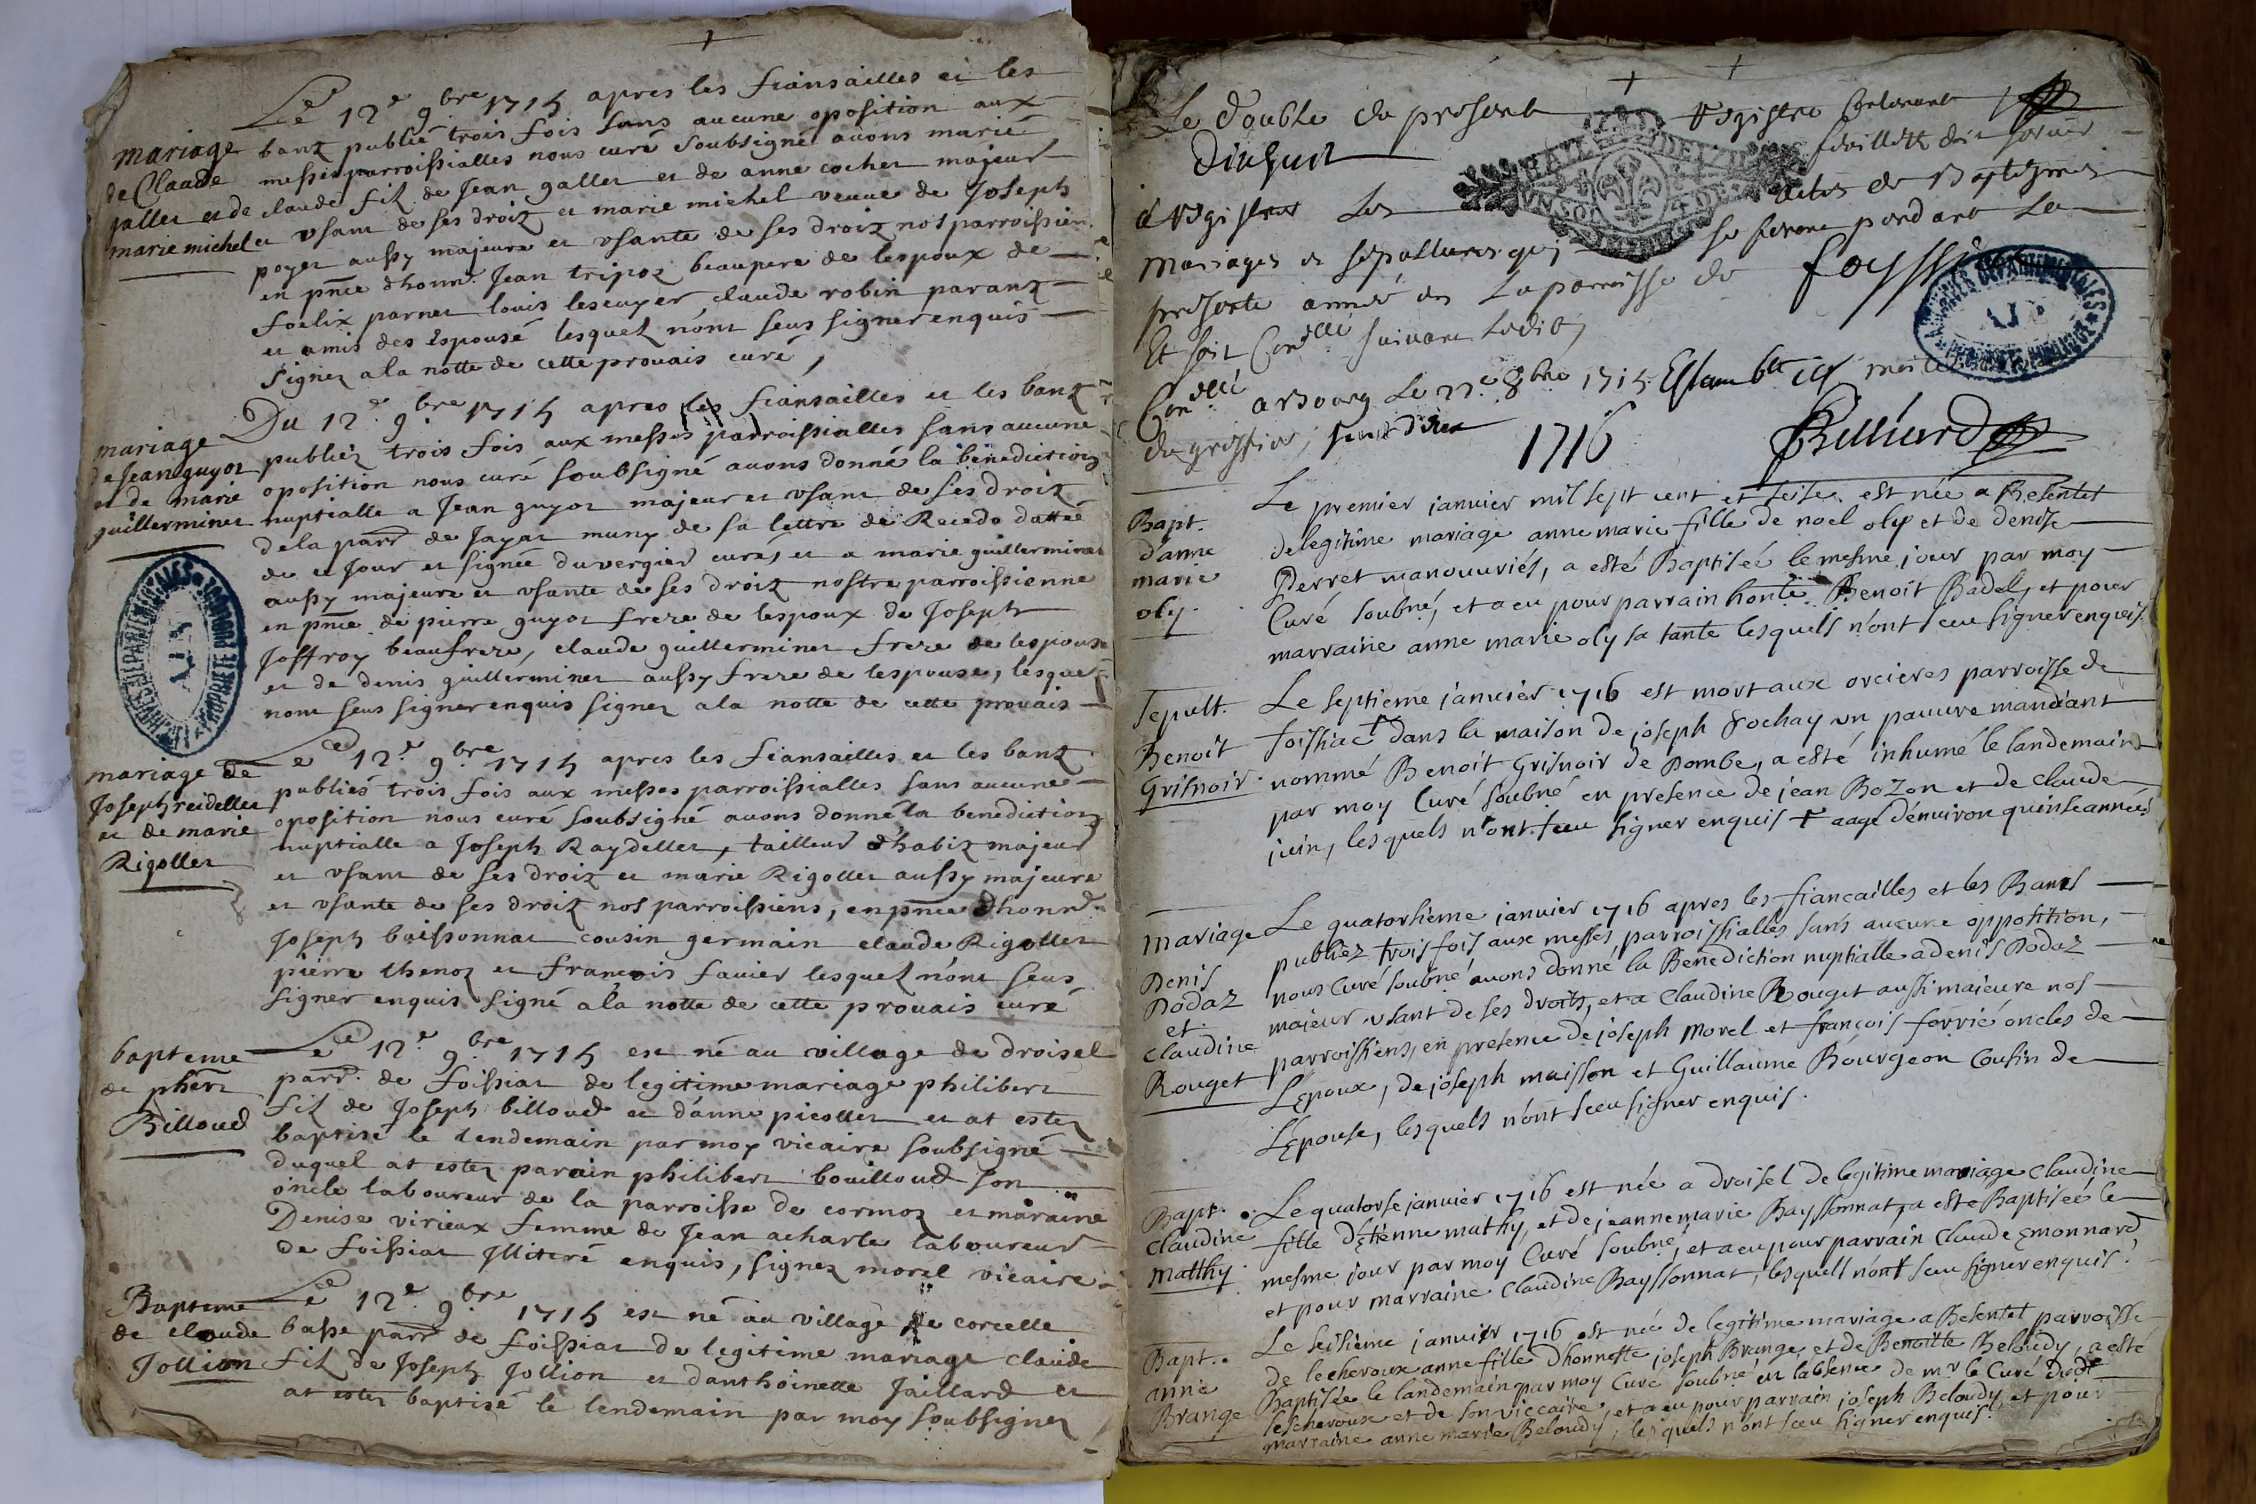 Le 12e 9bre 1715 apres les fiansailles et les
mariage banz publié trois fois sans aucune oposition aux
de Claude messes parroissialles nous curé soubsigné avons marié
gallet et de claude filz de Jean gallet et de anne cochet majeur
marie michel et usant de ses droiz et marie michel veuve de Joseph
poyet aussy majeure et usante de ses droiz nos parroissiens
en pnce dhonn. Jean tripoz beaupere de lespoux de
foelix parnet louis lescuyer claude robin paranz
et amis des espousé lesquelz n'ont seus signer enquis
signez a la notte de cette prouais curé
Du 12e 9bre 1715 apres les fiansailles et les banz
mariage publiéz trois fois aux messes parroissialles sans aucune
de Jean guyot oposition nous curé soubsigné avons donné la benediction
et de marie nuptialle a Jean guyot majeur et usant de ses droiz
guillerminet de la parr. de Jayat muny de sa lettre de Recedo dattée
de ce Jour et signée duvergier curé, et a marie guillerminet
aussy majeure et usante de ses droiz nostre parroissienne
en pnce de pierre guyot frere de lespoux de Joseph
Joffroy beaufrere, claude guillerminet frere de lespouse
et de denis guillerminet aussy frere de lespouse, lesquelz
nont seus signer enquis signez a la notte de cette prouais
ARCHIVES DEPARTEMENTALES
AIN
Le 12e 9bre 1715 apres les fiansailles et les banz
mariage de publiés trois fois aux messes parroissialles sans aucune
Joseph reidellet oposition nous curé soubsigné avons donné la benediction
et de marie nuptialle a Joseph Raydellet, tailleur d'habiz majeur
Rigollet et usant de ses droiz et marie Rigollet aussy majeure
et usante de ses droiz nos parroissiens, en pnce dhonn.
Joseph boissonnat cousin germain claude Rigollet
pierre thenoz et françois favier lesquelz n'ont seus
signer enquis signé a la notte de cette prouais curé
bapteme Le 12e 9bre 1715 est né au village de droisel
de phert parr. de foissiat de legitime mariage philibert
Billoud filz de Joseph billoud et d'anne picollet et at estez
baptisé le lendemain par moy vicaire soubsigné
duquel at estez parain philibert bouilloud son
oncle laboureur de la parroisse de cormoz et maraine
Denise virieux femme de Jean acharle laboureur
de foissiat Illiteré enquis, signez morel vicaire
Bapteme Le 12e 9bre 1715 est né au village de corcelle
de claude basse parr de foissiat de legitime mariage claude
Jollion filz de Joseph Jollion et danthoinette Jaillard et
at estez baptisé le lendemain par moy soubsignez
Le double du present registre contenant
dixhuit feuillets doit servir
a registrer les actes de Baptesmes
Mariages et sepultures qui se feront pendant la
presente année en la parroisse de foyssiat
Et soit suivant
a Bourg le 8bre 1715
du greffier,
Billiard
ARCHIVES DEPARTEMENTALES
AIN
1716
Le premier janvier mil sept cent et seise est née a Besentet
Bapt. de legitime mariage anne marie fille de noel oly et de denise
d'anne Perret manouvriés, a esté Baptisée le mesme jour par moy
marie Curé soubné, et a eu pour parrain honte Benoit Badel, et pour
oly. marraine anne marie oly sa tante lesquels n'ont sceu signer enquis.
Sepult. Le septieme janvier 1716 est mort aux orcieres parroisse de
Benoit foissiac dans la maison de joseph fochay un pauvre mandiant
Grisnoir. nommé Benoit Grisnoir de Dombe, a esté inhumé le landemain
par moy Curé soubné en presence de jean Bozon et de claude
juin, lesquels n'ont sceu signer enquis + aagé d'environ quinse années
mariage Le quatorsième janvier 1716 apres les fiancailles et les Bancs
Denis publiez trois fois aux messes parroissialles sans aucune opposition,
Dodaz nous Curé soubné avons donné la Benediction nuptialle a denis Dodaz
et majeur usant de ses droits, et a Claudine Rouget aussi majeure nos
claudine parroissiens, en presence de joseph Morel et françois forrié oncles de
Rouget L'epoux, de joseph maisson et Guillaume Bourgeon Cousin de
L'Epouse, lesquels n'ont sceu signer enquis.
Bapt. Le quatorse janvier 1716 est née a droisel de legitime mariage Claudine
Claudine fille d'Etienne mathy, et de jeanne marie Bayssonnat, a esté Baptisée le
Matthy. mesme jour par moy Curé soubné, et a eu pour parrain Claude Emonnard
et pour marraine Claudine Bayssonnat, lesquels n'ont sceu signer enquis.
Bapt. Le seisieme janvier 1716 est née de legitime mariage a Besentet parroisse
anne de lecheroux anne fille d'honneste joseph Brange, et de Benoitte Beloudy, a esté
Brange Baptisée le landemain par moy Curé soubné en labsence de mr le Curé dudt
lescheroux et de son viccaire, et a eu pour parrain joseph Beloudy, et pour
marraine anne marie Beloudy, lesquels n'ont sceu signer enquis.